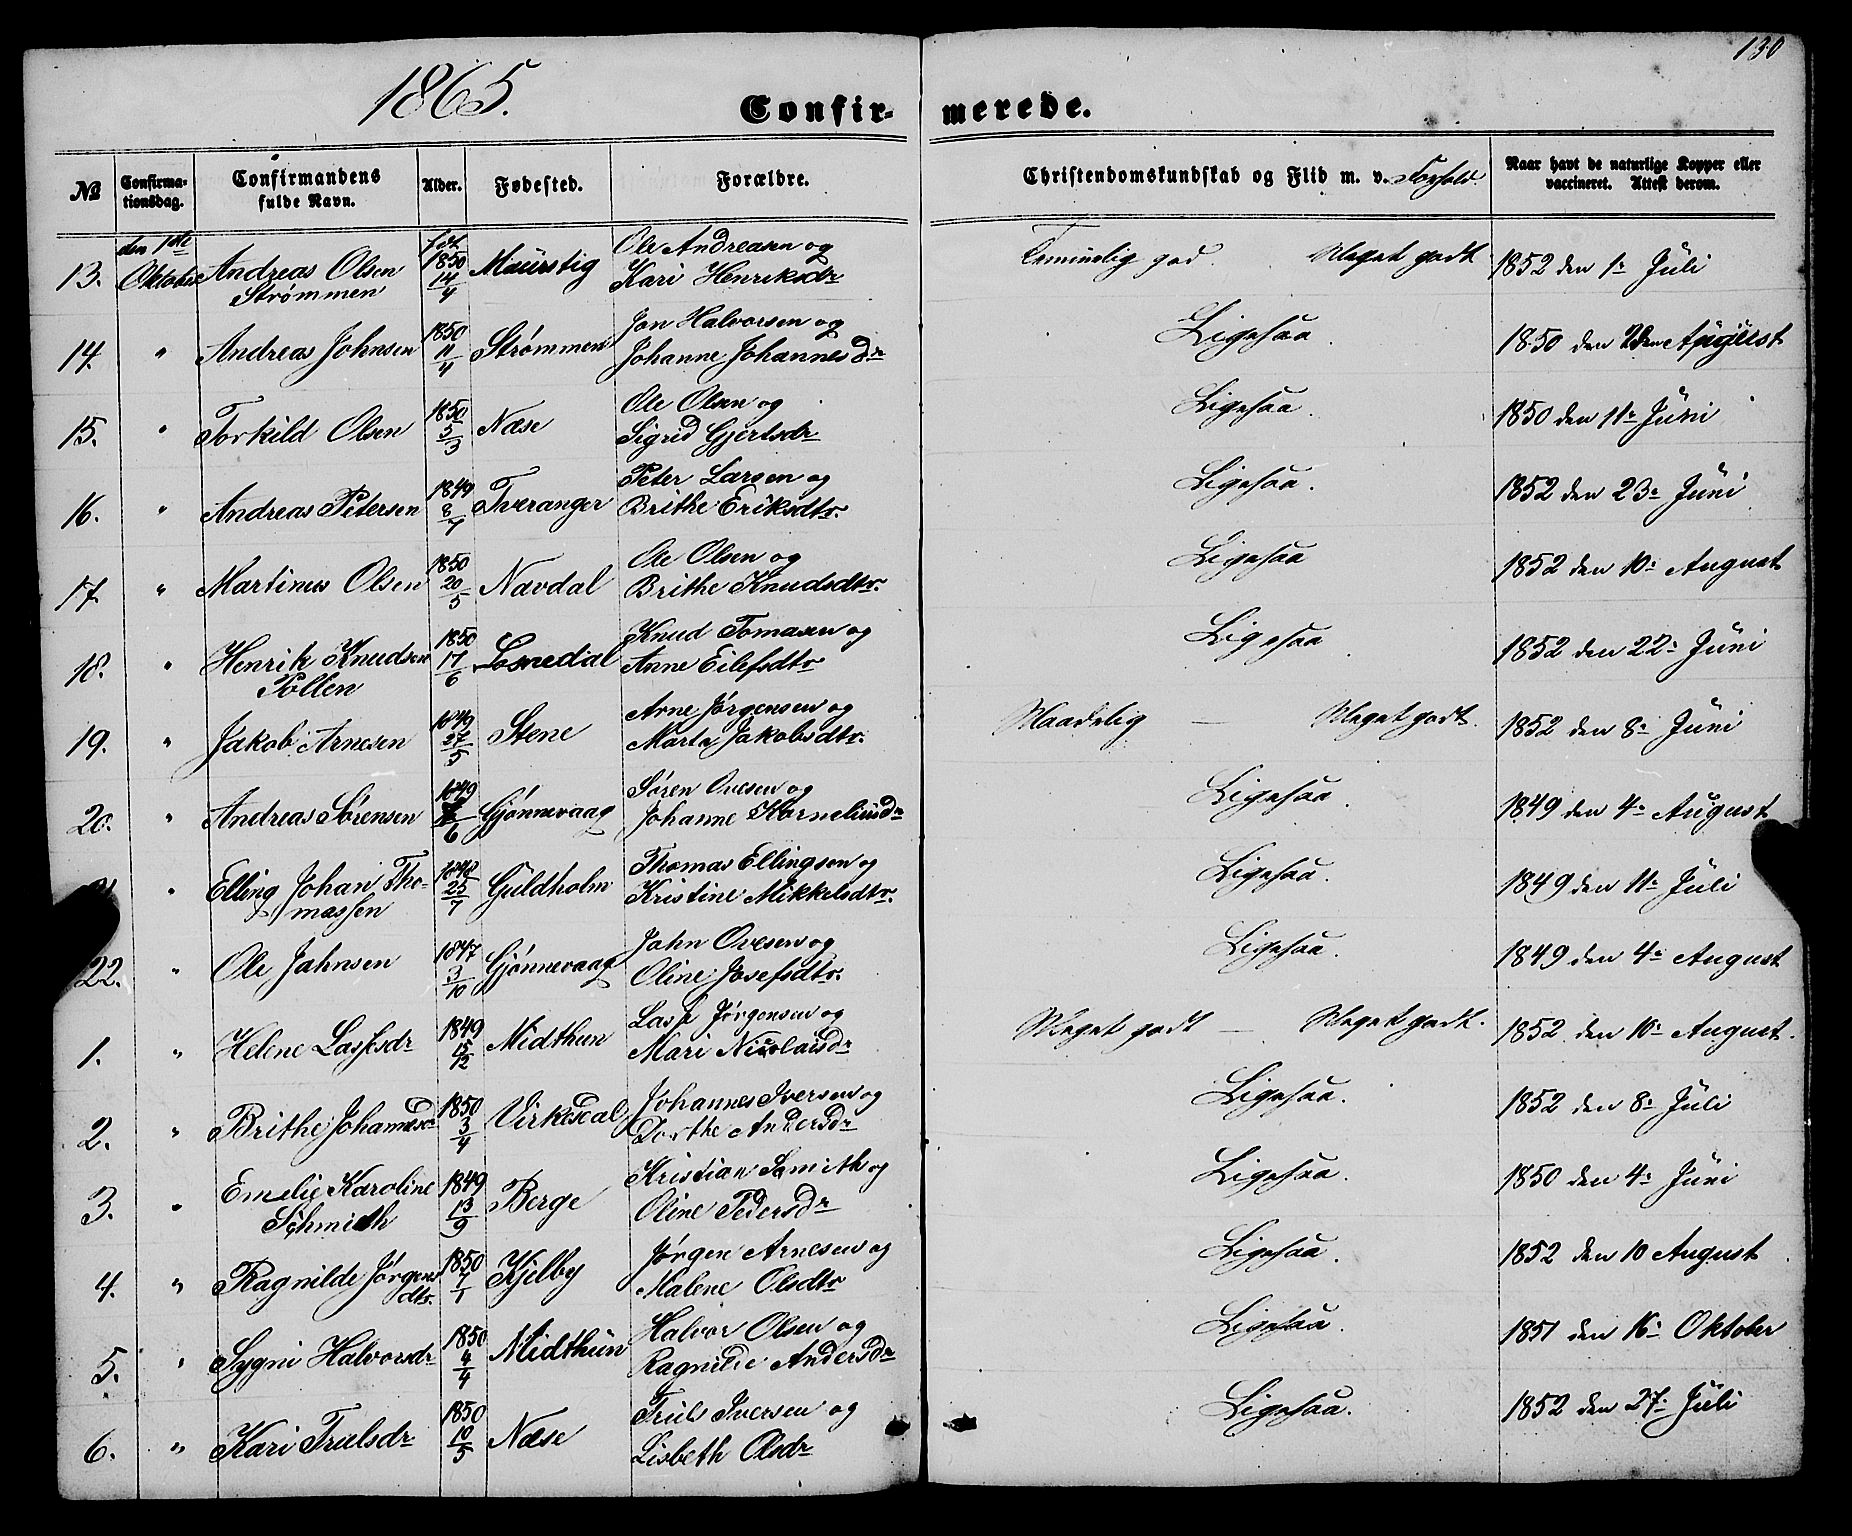 130
1865.
Confirmerede.
No
Confirmationsdag.
Confirmandens fulde Navn.
Alder.
Fødested.
Forældre.
Christendomskundskab og Flid m. v. Forhold.
Naar havt de naturlige Kopper eller vaccineret. Attest derom.
13. den 1ste Oktober Andreas Olsen Strømmen fød 1850 14/4 Maurstig Ole Andreasen og Kari Henriksdr Temmelig god. Meget godt 1852 den 1: Juli
14. " Andreas Johnsen 1850 11/4 Strømmen Jon Halvorsen og Johanne Johannesdr Ligesaa. 1850 den August
15. " Torkild Olsen 1850 5/3 Næse Ole Olsen og Sigrid Gjertsdr Ligesaa. 1850 den 11te Juni
16. " Andreas Petersen 1849 8/7 Tveranger Peter Larsen og Brithe Eriksdtr. Ligesaa. 1852 den 23: Juni
17. " Martinus Olsen 1850 20/5 Navdal Ole Olsen og Brithe Knudsdtr. Ligesaa 1852 den 10: August
18. " Henrik Knudsen Pollen 1850 17/6 Losnedal Knud Tomasen og Anne Eilefsdtr Ligesaa 1852 den 22: Juni
19. " Jakob Arnesen 1849 27/5 Stene Arne Jørgensen og Marta Jakobsdtr. Maadelig — Meget godt. 1852 den 8: Juni
20. " Andreas Sørensen 1849 /6 Gjønnevaag Søren Ovesen og Johanne Korneliusdr Ligesaa. 1849 den 4: August
" Elling Johan Thomassen 1848 25/7 Guldholm Thomas Ellingsen og Kristine Mikkelsdtr. Ligesaa. 1849 den 11: Juli
22. " Ole Jahnsen 1847 3/10 Gjønnevaag John Ovesen og Oline Josefsdtr. Ligesaa. 1849 den 4: August
1. " Helene Lasfsdr 1849 15/12 Midthun Lasf Jørgensen og Mari Nicolaisdr Meget godt — Meget godt. 1852 den 10: August.
2. " Brithe Johannesdr 1850 3/4 Virkesdal Johannes Iversen og Dorthe Andersdr Ligesaa. 1852 den 8: Juli
3. " Emelie Karoline Schmidth 1849 13/9 Berge Kristian Smith og Oline Pedersdr Ligesaa. 1850 den 4: Juni
4. " Ragnilde Jørgensdtr. 1850 7/1 Kjelby Jørgen Arnesen og Malene Olsdtr Ligesaa. 1852 den 10 August
5. " Sygni Halvorsdr 1850 4/4 Midthun Halvor Olsen og Ragnilde Andersdr Ligesaa. 1851 den 16: Oktober
6. " Kari Trulsdr 1850 10/5 Næse Truls Iversen og Lisbeth Olsdr Ligesaa. 1852 den 27: Juli